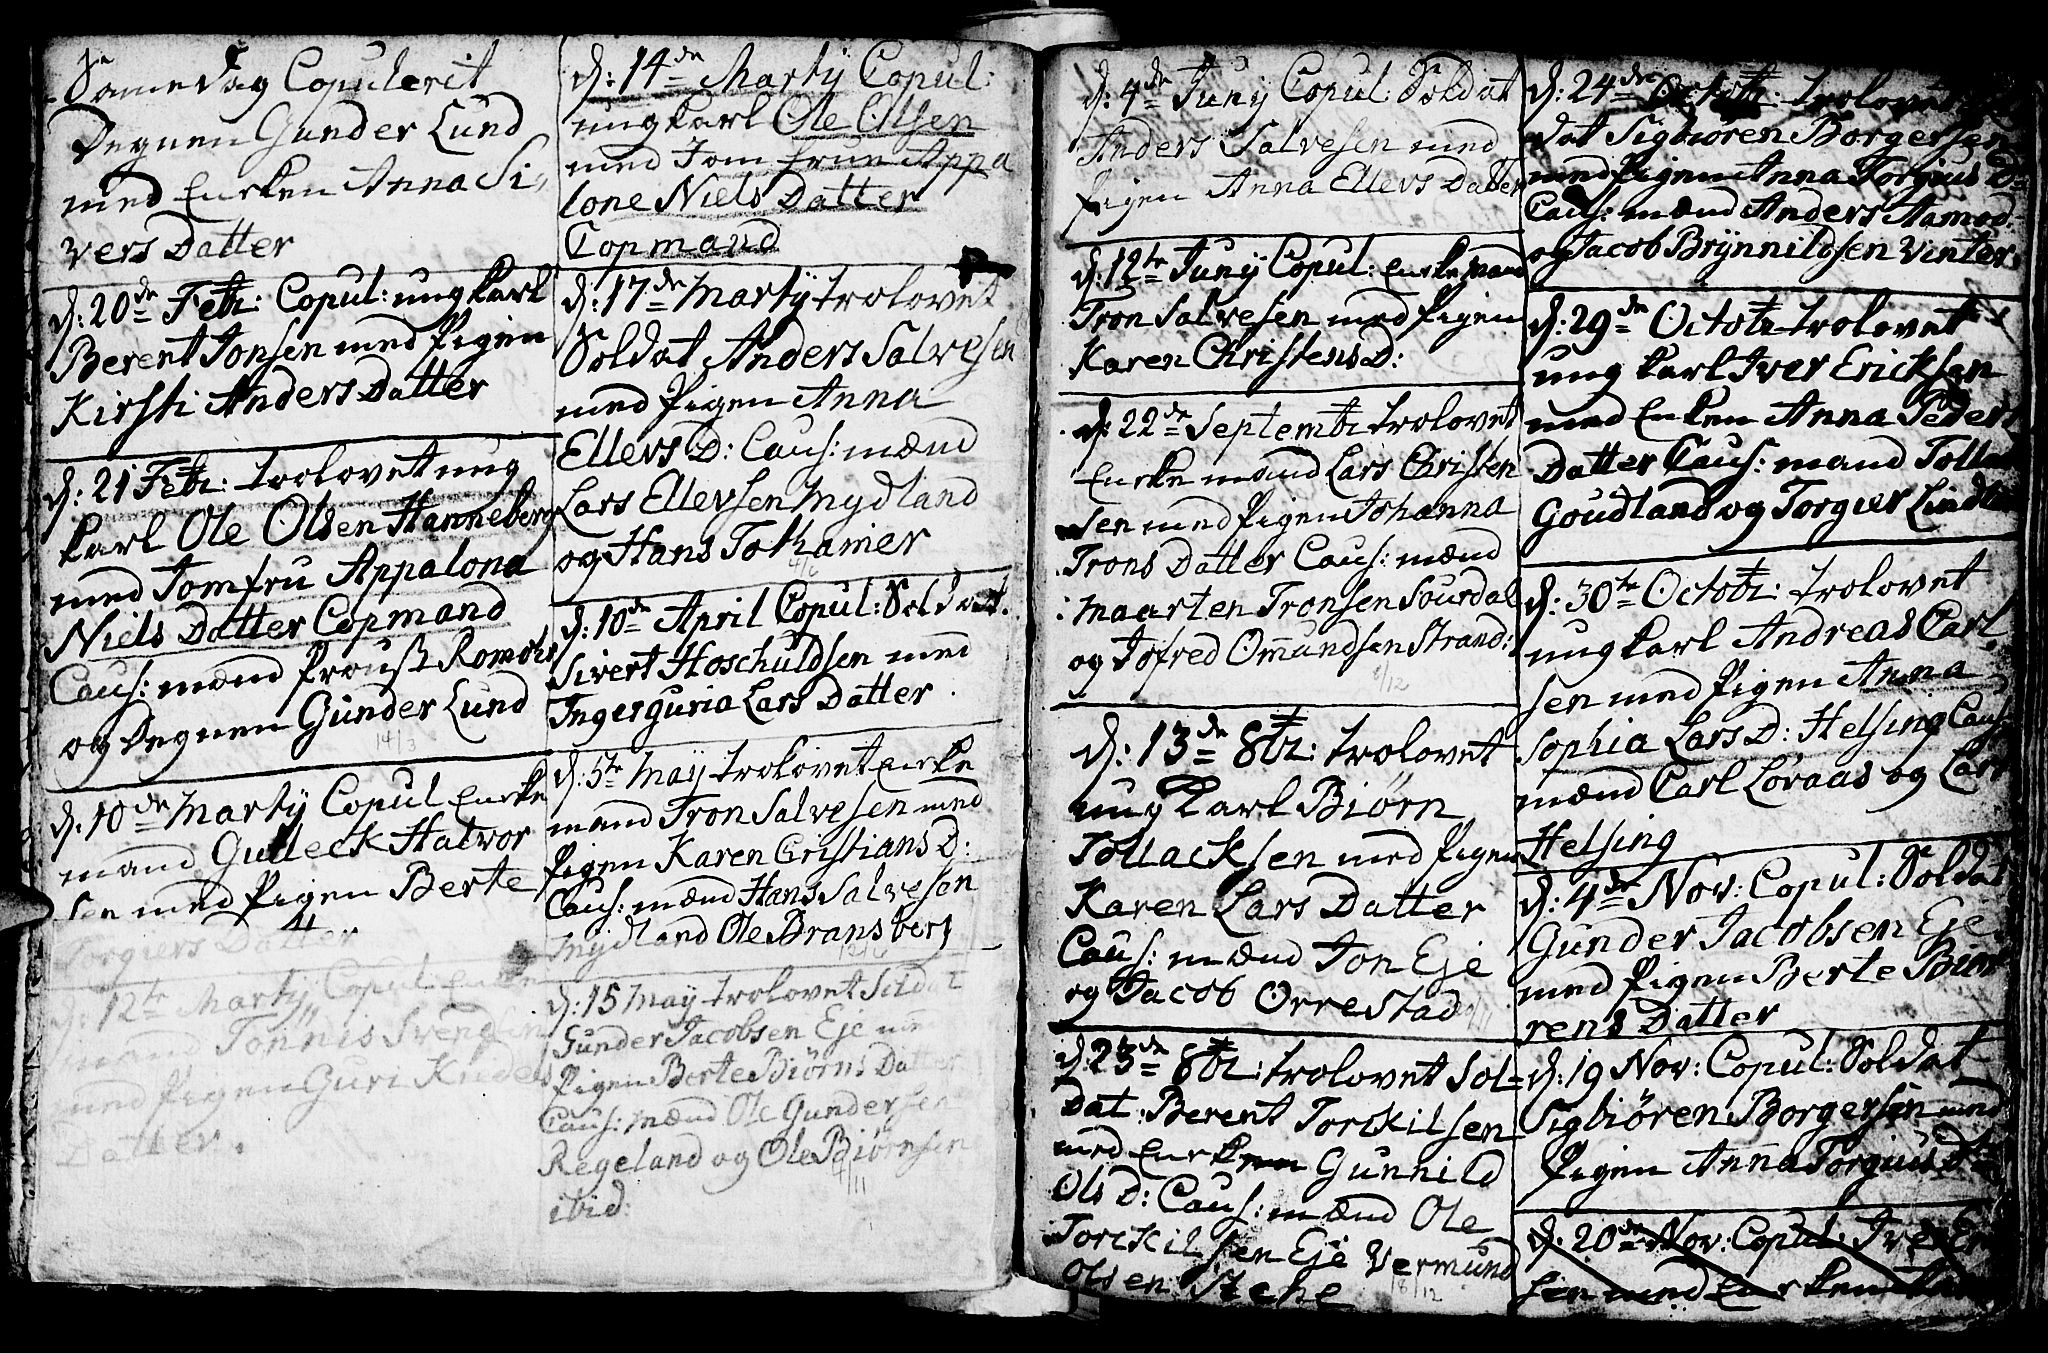 Same Dag Copulerit
Degnen Gunder Lund
med Encken Anna Si,,
vers Datter
d: 20de Febr: Copul: ungkarl
Berent Jonsen med Pigen
Kirsti Anders Datter
d: 21 Febr: trolovet ung
karl Ole Olsen Hanneberg
med Jomfru Appalona
Niels Datter Copmand
Caus: mænd Proust
og Degnen Gunder Lund
14/3
d: 10de Martij Copul Encke
mand Gulleck Halvor
sen med Pigen Berte
Torgiers Datter
d: 12te Martij Copul Encke
mand Tønnis Svendsen
med Pigen Guri Knuds
Datter.
d: 14de Martij Copul:
ungkarl Ole Olsen
med Jomfrue Appa
lone Niels Datter
Copmand
d: 17de Martij trolovet
Soldat Anders Salvesen
med Pigen Anna
Ellevs D: Caus: mænd
Lars Ellevsen Mydland
og Hans Tothamer
4/6
d: 10de April Copul: Soldat.
Sivert Hoschuldsen med
Ingerguria Lars Datter
d: 5te Maij trolovet Encke
mand Tron Salvesen med
Pigen Karen Cristians D:
Caus: mænd Hans Salvesen
Mydland Ole Bransberg
12/6
d: 15 Maij trolovet Soldat
Gunder Jacobsen Eje med
Pigen Berte Biørns Datter
Caus: mænd Ole Gundersen
Regeland og Ole Biørnsen
4/11
ibid:
d: 4de Junij Copul: Soldat
Anders Salvesen med
Pigen Anna Ellevs Datter
d: 12te Junij Copul: Enckemand
Tron Salvesen med Pigen
Karen Christens D:
d: 22de Septembr trolovet
Enckemand Lars Christen
sen med Pigen Johanna
Trons Datter Caus: mænd
Maarten Tronsen Sourdal
og Jofred Omundsen Strand:
8/12
d: 13de 8br: trolovet
ung karl Biørn
Tollacksen med Pigen
Karen Lars Datter
Caus: mænd Jon Eje
og Jacob Orrestad
d: 23de 8br: trolovet Sol=
dat: Berent Torckilsen
med Encken Gunnild
Ols D: Caus: mænd Ole
Torckilsen Eje Vermund
Olsen Stene
18/12
d: 24de Octobr: trolovet
dat Sigbiøren Borgersen
med Pigen Anna Torgius D
Caus: mænd Anders Aamod
og Jacob Brynnildsen Vinter
d: 29de Octobr trolovet
ungkarl Iver Ericksen
med Encken Anna Peders
Datter Caus: mænd
Goudland og Torgier
d: 30te Octobr: trolovet
ungkarl Andreas Carl
sen med Pigen Anna
Sophia Lars D: Helsing Caus:
mænd Carl Løraas og Lars
Helsing
d: 4de Nov: Copul: Soldat
Gunder Jacobsen Eje
med Pigen Berte Biør
rens Datter
d: 19 Nov: Copul: Soldat
Sigbiøren Borgersen med
Pigen Anna Torgius D
d: 20de Nov: Copul: Iver
sen med Encken